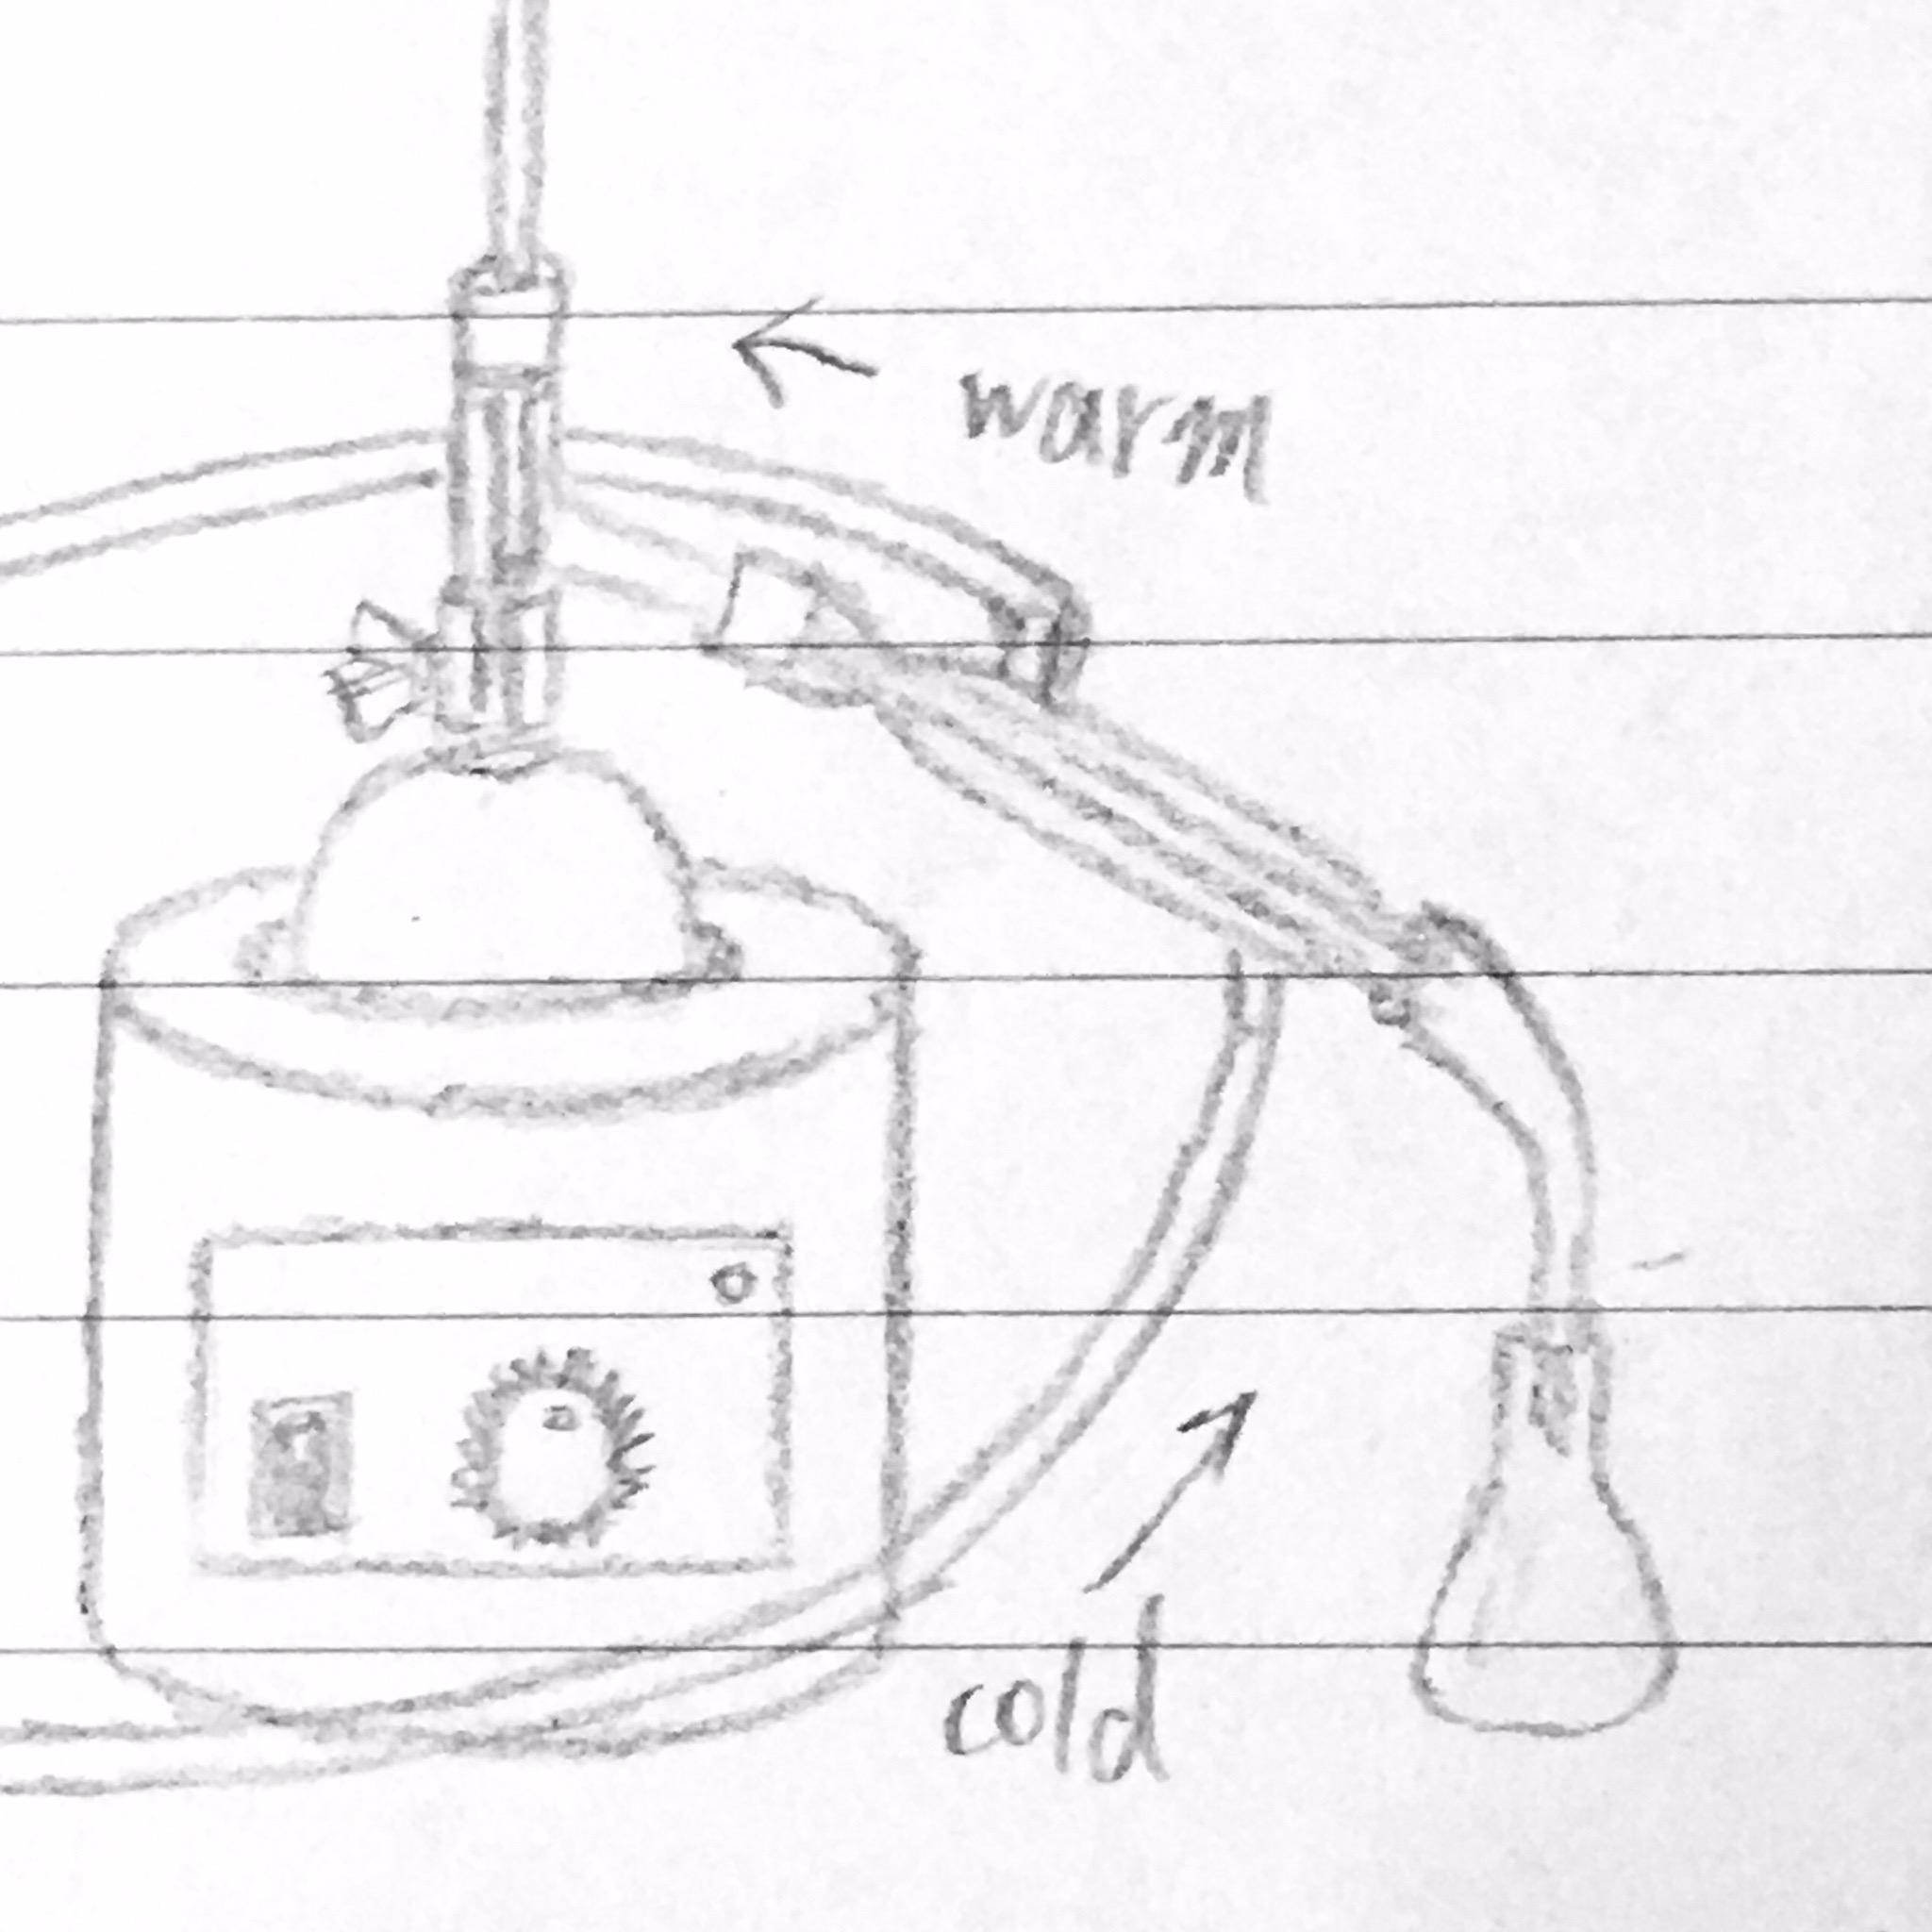 warm
cold